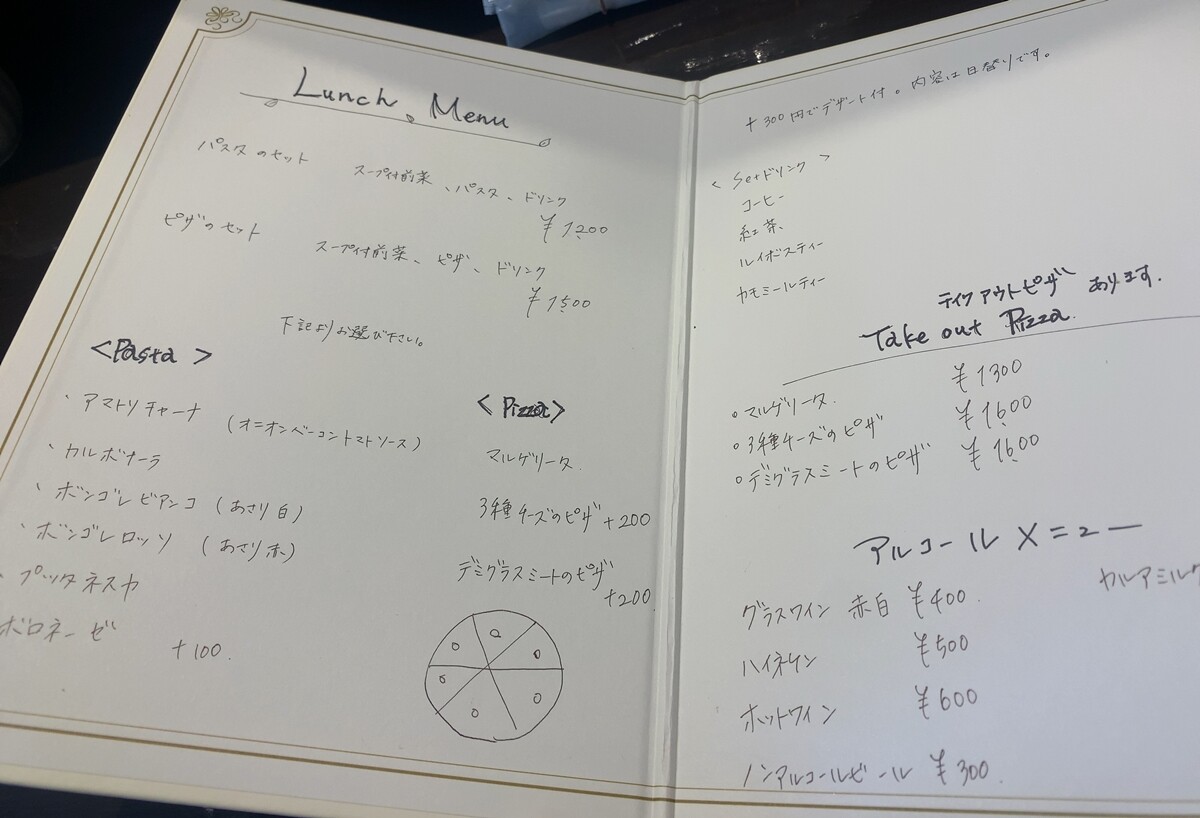 Lunch Menu
パスタのセット
スープ付前菜、パスタ、ドリンク
¥1200
ピザのセット
スープ付前菜、ピザ、ドリンク
¥1500
下記よりお選び下さい。
<Pasta>
・アマトリチャーナ (オニオンベーコントマトソース)
・カルボナーラ
・ボンゴレビアンコ (あさり白)
・ボンゴレロッソ (あさり赤)
・プッタネスカ
ボロネーゼ +100.
<Pizza>
マルゲリータ.
3種チーズのピザ+200
デミグラスミートのピザ
+200
+300円でデザート付。内容は日替りです。
<Setドリンク>
コーヒー
紅茶
ルイボスティー
カモミールティー
テイクアウトピザ あります.
Take out Pizza.
○マルゲリータ. ¥1300
○3種チーズのピザ ¥1600
○デミグラスミートのピザ ¥1600
アルコールメニュー
グラスワイン 赤白 ¥400.
カルアミルク
ハイネケン ¥500
ホットワイン ¥600
ノンアルコールビール ¥300.